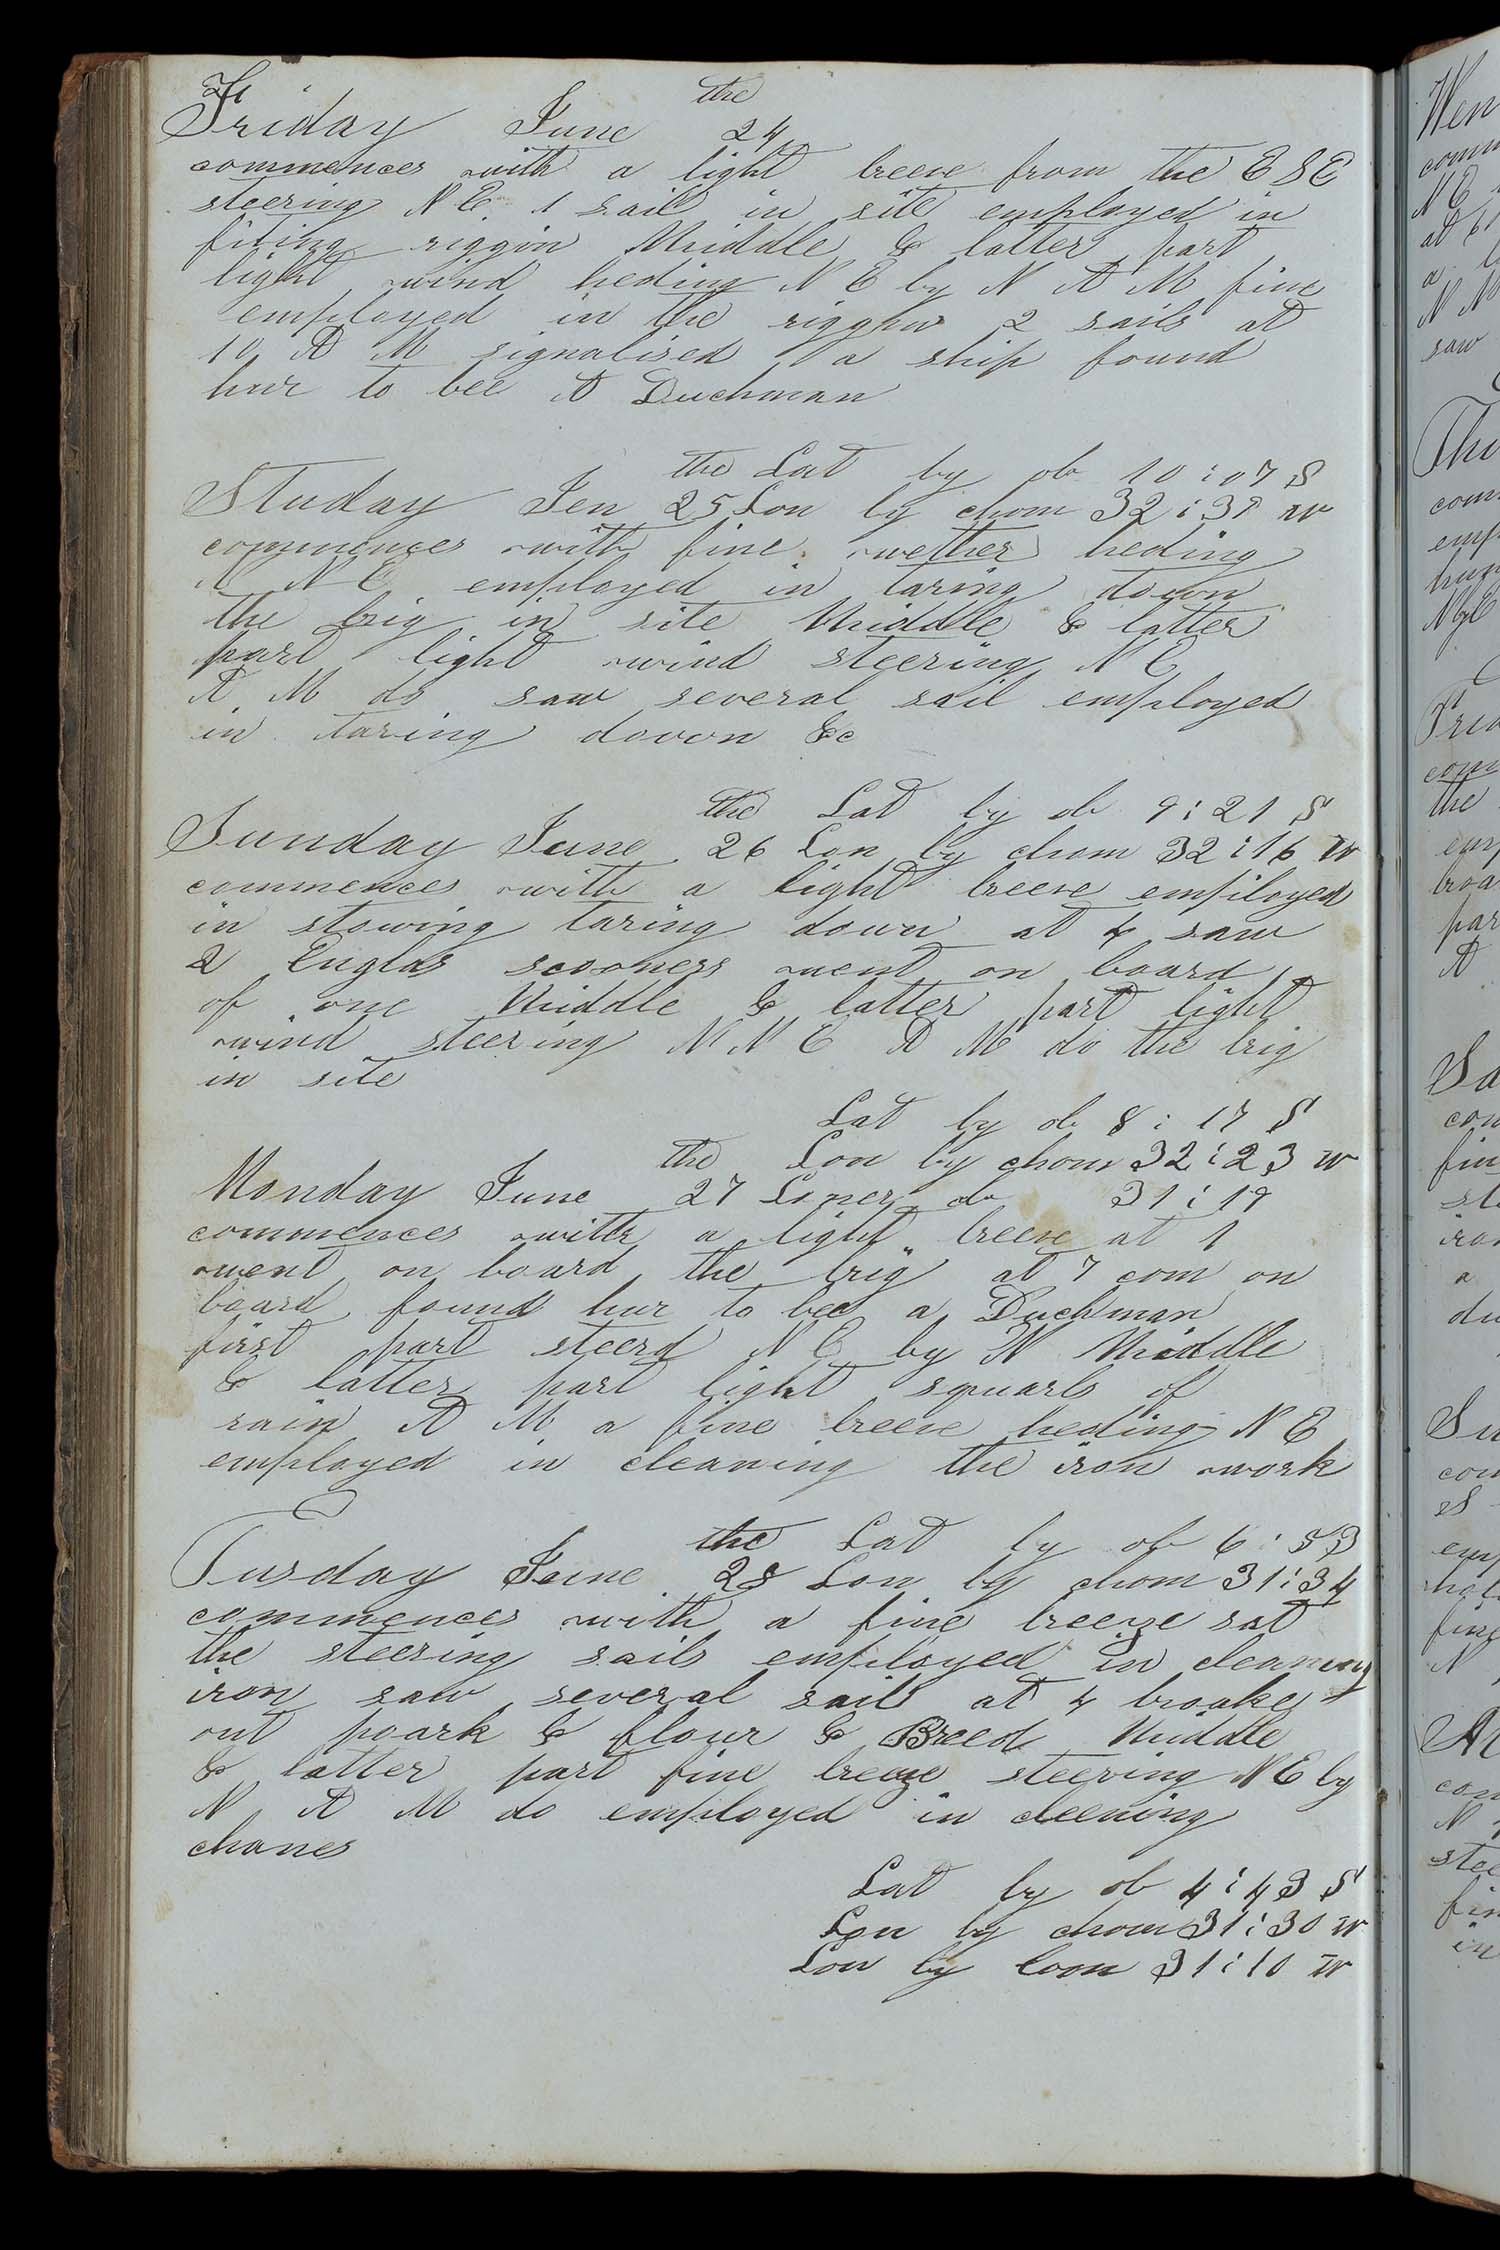 Friday June the 24
commences with a light breeve from the E S E
steering N E 1 sail in site employed in
fiting riggin Middle & latter part
light wind heding N E by N A M fine
employed in the riggin 2 sails at
10 A M signalised a ship found
hur to bee A Duchman
the Lat by ob 10 : 07 S
Studay Jen 25 Lon by chom 32 : 38 W
commences with fine wether heding
N N E employed in taring down
the brig in site Middle & latter
part light wind steering N E
A M do saw several sail employed
in taring down &c
the Lat by ob 9 : 21 S
Sunday June 26 Lon by chom 32 : 16 W
commences with a light breeve employed
in stowing taring down at 4 saw
2 Englas scooners went on board
of one Middle & latter part light
wind steering N N E A M do the brig
in site
Lat by ob 8 : 17 S
the Lon by chom 32 : 23 W
Monday June 27 Loner do 31 : 19
commences with a light breeve at 1
went on board the brig at 7 com on
board found hur to bee a Duchman
first part steerd N E by N Middle
& latter part light squarls of
rain A M a fine breeve heding N E
employed in cleaning the iron work
the Lat by ob 6 : 53
Tursday June 28 Lon by chom 31 : 34
commences with a fine breeze sat
the steering sails employed in cleaning
iron saw several sail at 4 broake
out poark & flour & Breed Middle
& latter part fine breeze steering N E by
N A M do employed in cleening
chanes
Lat by ob 4 : 43 S
Lon by chom 31 : 30 W
Lon by loon 31 : 10 W
Wen
comm
N E
at 6
a
N N
saw
Thu
com
emp
N E
Frid
com
the
emp
broa
par
A
Sa
com
fin
ste
iron
a
du
Su
com
S
emp
fine
N
com
N
stee
fin
in